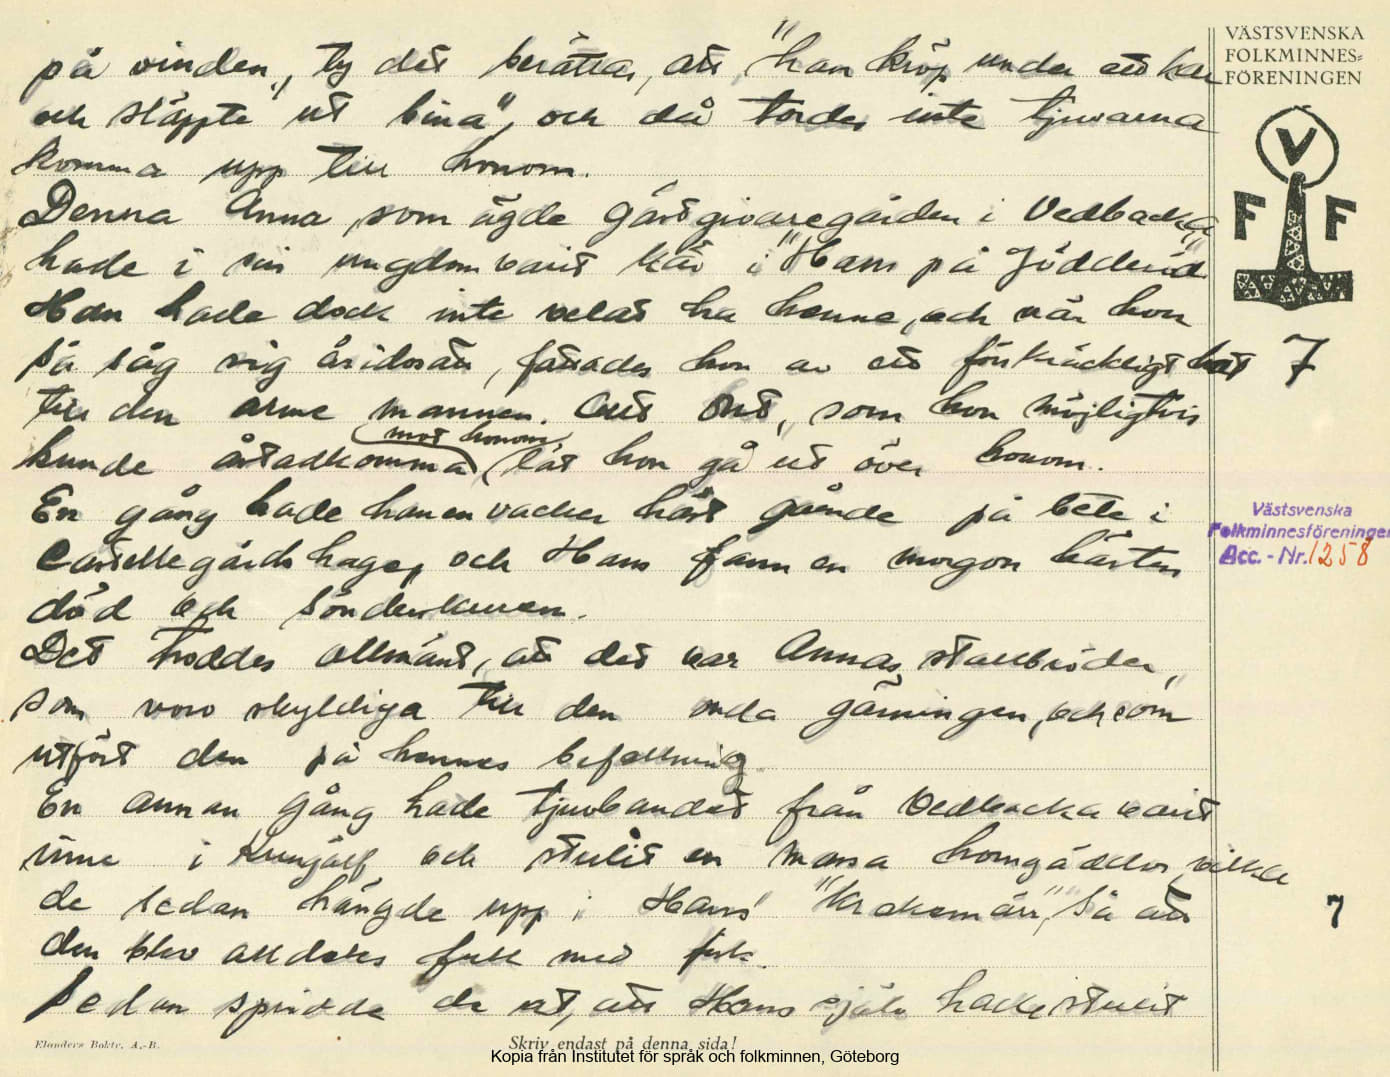 på vinden, ty det berättas, att "han kröp under ett kar
och släppte ut bina", och då tordes inte tjuvarna
komma upp till honom.
Denna Anna, som ägde gästgivaregården i Vedbacka,
hade i sin ungdom varit kär i "Hans på
Han hade dock inte velat ha henne, och när hon
så såg sig åsidosatt, fattades hon av ett förskräckligt hat
till den arme mannen. Allt ont, som hon möjligtvis
kunde åstadkomma mot honom lät hon gå ut över honom.
En gång hade han en vacker häst gående på bete i
Castellegårds hage, och Hans fann en morgon hästen
död och sönderskuren.
Det troddes allmänt, att det var Annas stallbröder,
som voro skyldiga till den onda gärningen, och som
utfört den på hennes befallning
En annan gång hade tjuvbandet från Vedbacka varit
inne i Kungälf och stulit en massa horngäddor, vilka
de sedan hängde upp i Hans' så att
den blev alldeles full med fisk.
Sedan spridde de ut, att Hans själv hade stulit
VÄSTSVENSKA
FOLKMINNES=
FÖRENINGEN
V
F F
7
Västsvenska
Folkminnesföreningen
Acc. - Nr. 1258
7
Elanders Boktr. A.-B.
Skriv endast på denna sida!
Kopia från Institutet för språk och folkminnen, Göteborg